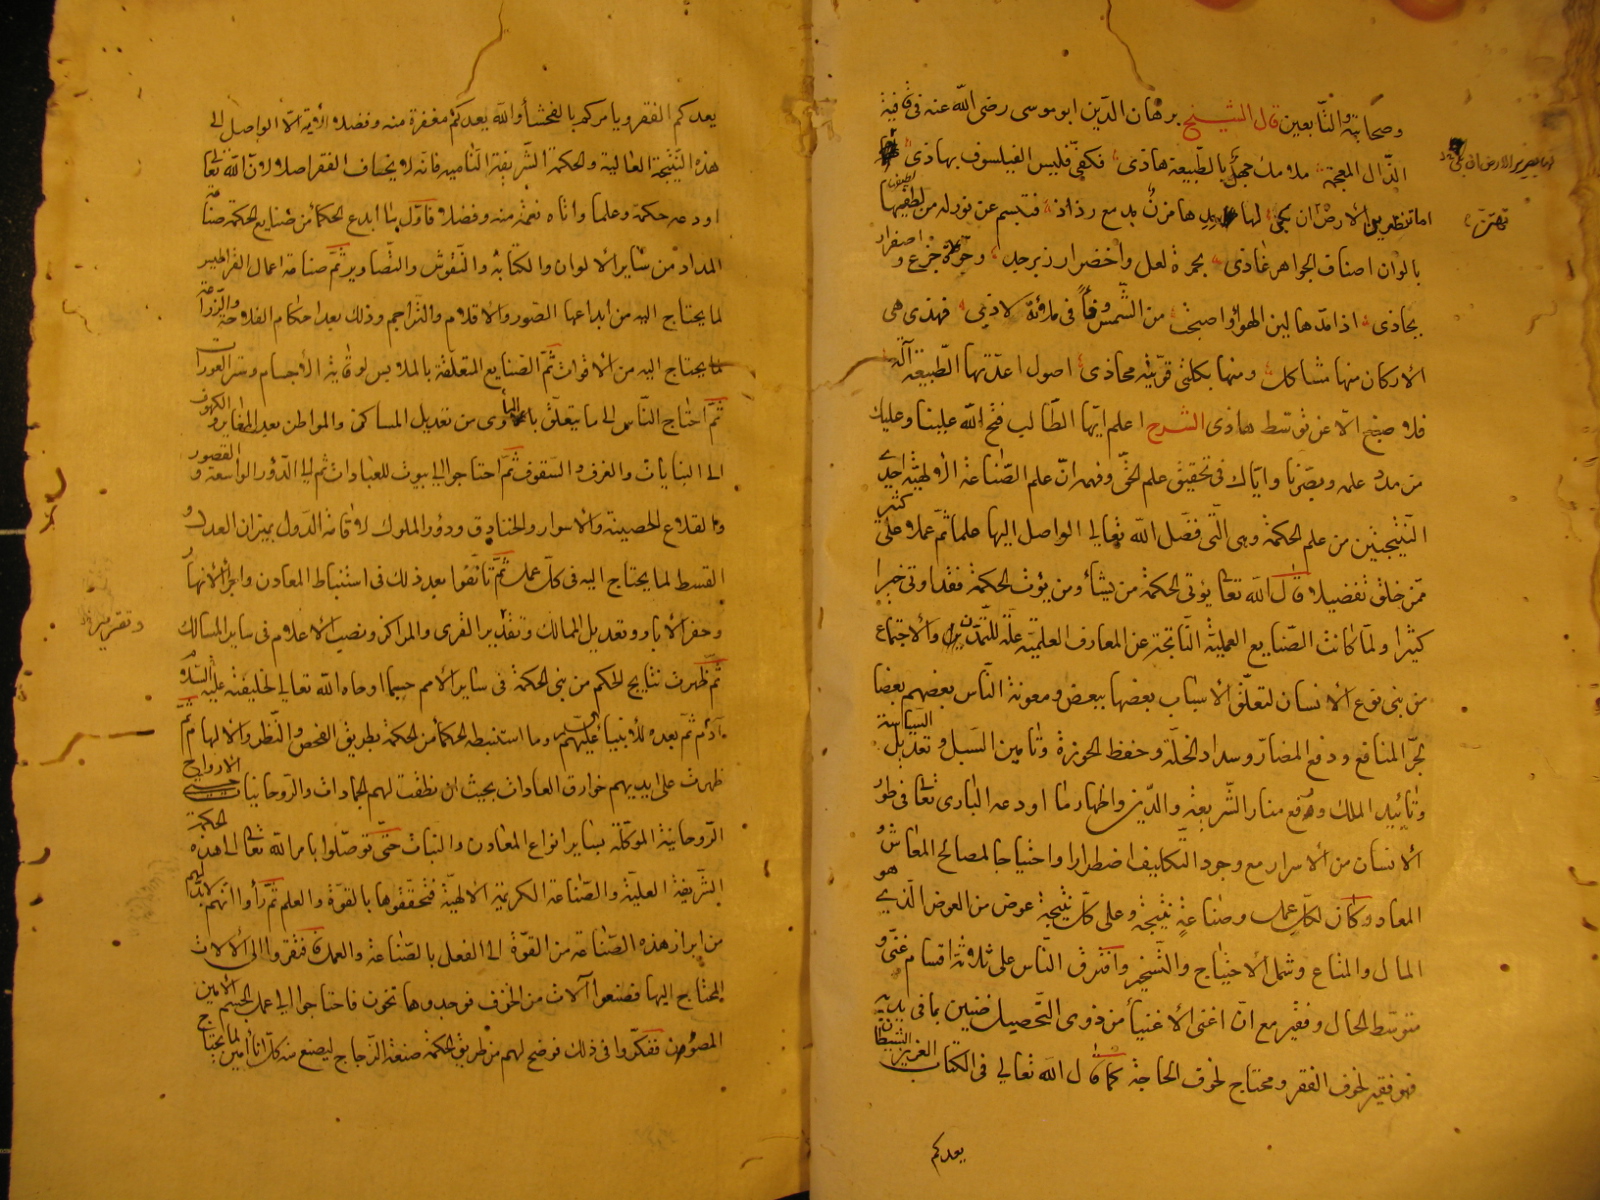 وصحابته والتابعين قال الشيخ برهان الدين ابو موسى رضى الله عنه فى قافية
الذال المعجمة ملامك جهل بالطبيعة هاذى فكفى فليس الفيلسوف بهاذى
اما تنظرين الارض ان يجئ لها يد هامزن يد مع رذاذ فتبسم عن نور له من لطيفها
بالوان اصناف الجواهر غاذى بحمرة لعل واخضرار زبرجد وخرة جزع واصفرار
بجاذى اذا مدها لين الهواء واصبحت من الشمس وقتا فى ملاءة لاذى فهذى هى
الاركان منها مشاكل ومنها بكلتى قربتيه محاذى اصول اعدتها الطبيعة آلة
فلا صنع الا عن توسط هاذى الشرح اعلم ايها الطالب فتح الله علينا وعليك
من مدد علمه وبصرنا واياك فى تحقيق علم الحق وفهمه ان علم الصناعة الالهية احدى
النتيجتين من علم الحكمة وهى التى فضل الله تعالى الواصل اليها علما ثم عملا على كثير
ممن خلق تفضيلا قال الله تعالى يؤتى الحكمة من يشاء ومن يؤت الحكمة فقد اوتى خيرا
كثيرا ولما كانت الصنايع العملية الناتجة عن المعارف العلمية علة للتمدن والاجتماع
من بنى نوع الانسان لتعلق الاسباب بعضها ببعض ومعونة الناس بعضهم بعضا
بجر المنافع ودفع المضار وسداد الخلة وحفظ الحوزة وتامين السبل وتعديل السياسة
وتاييد الملك ورفع منار الشريعة والدين واظهار ما اودعه البارى تعالى فى طور
الانسان من الاسرار مع وجود التكاليف اضطرارا واحتياجا لمصالح المعاش و
المعاد وكان لكل عمل وصناعة نتيجة وعلى كل نتيجة عوض من العوض الذى هو
المال والمتاع وشمل الاحتياج والتسخير وافترق الناس على ثلاثة اقسام غنى و
متوسط الحال وفقير مع ان اغنى الاغنياء من ذوى التحصيل ضنين بما فى يديه
فهو فقير لخوف الفقر ومحتاج لخوف الحاجة كما قال الله تعالى فى الكتاب العزيز الشيطان
يعدكم
يعدكم الفقر ويامركم بالفحشاء والله يعدكم مغفرة منه وفضلا الاية الا الواصل الى
هذه النتيجة العالية والحكمة الشريفة النامية فانه لا يخاف الفقر اصلا لان الله تعالى
اودعه حكمة وعلما واتاه نعمة منه وفضلا فاول ما ابدع الحكماء من صنايع الحكمة صناعة
المداد من ساير الالوان والكتابة والنقوش والتصاوير ثم صناعة اعمال الفراطير
لما يحتاج اليه من ابداعها الصور والاقلام والتراجم وذلك بعد احكام الفلاحة والزراعة
لما يحتاج اليه من الاقوات ثم الصنايع المتعلقة بالملابس لوقاية الاجسام وستر العورات
ثم احتاج الناس الى ما يتعلق بالمأوى من تعديل المساكن والمواطن بعد المغاير والكهوف
الى البنايات والغرف والسقوف ثم احتاجوا الى بيوت للعبادات ثم الى الدور الواسعة والقصور
والقلاع الحصينة والاسوار والخنادق ودور الملوك لاقامة الدول بميزان العدل و
القسط لما يحتاج اليه فى كل عمل ثم تانقوا بعد ذلك فى استنباط المعادن واجراء الانهار
وحفر الابار وتعديل الممالك وتقدير القرى والمراكز ونصب الاعلام فى ساير المسالك
ثم ظهرت نتايج الحكم من بنى الحكمة فى ساير الامم حسبما اوحاه الله تعالى لخليفته عليه السلام
آدم ثم بعده للانبياء عليهم وما استنبطه الحكماء من الحكمة بطريق الفحص والنظر والالهام ثم
ظهرت على ايديهم خوارق العادات بحيث ان نطقت لهم الجمادات والروحانيات الارواح
الروحانية الموكلة بساير انواع المعادن والنبات حتى توصلوا بامر الله تعالى الى هذه الحكمة
الشريفة العلية والصناعة الكريمة الالهية فتحققوها بالقوة والعلم ثم رأوا انهم لابد لهم
من ابراز هذه الصناعة من القوة الى الفعل بالصناعة والعمل فافتقروا الى الالات
المحتاج اليها فصنعوا آلات من الخزف فوجدوها تخون فاحتاجوا الى عمل الجسم الامين
المصون ففكروا فى ذلك فوضح لهم من طريق الحكمة صنعة الزجاج ليصنع منه كل اناء امين لما يحتاج